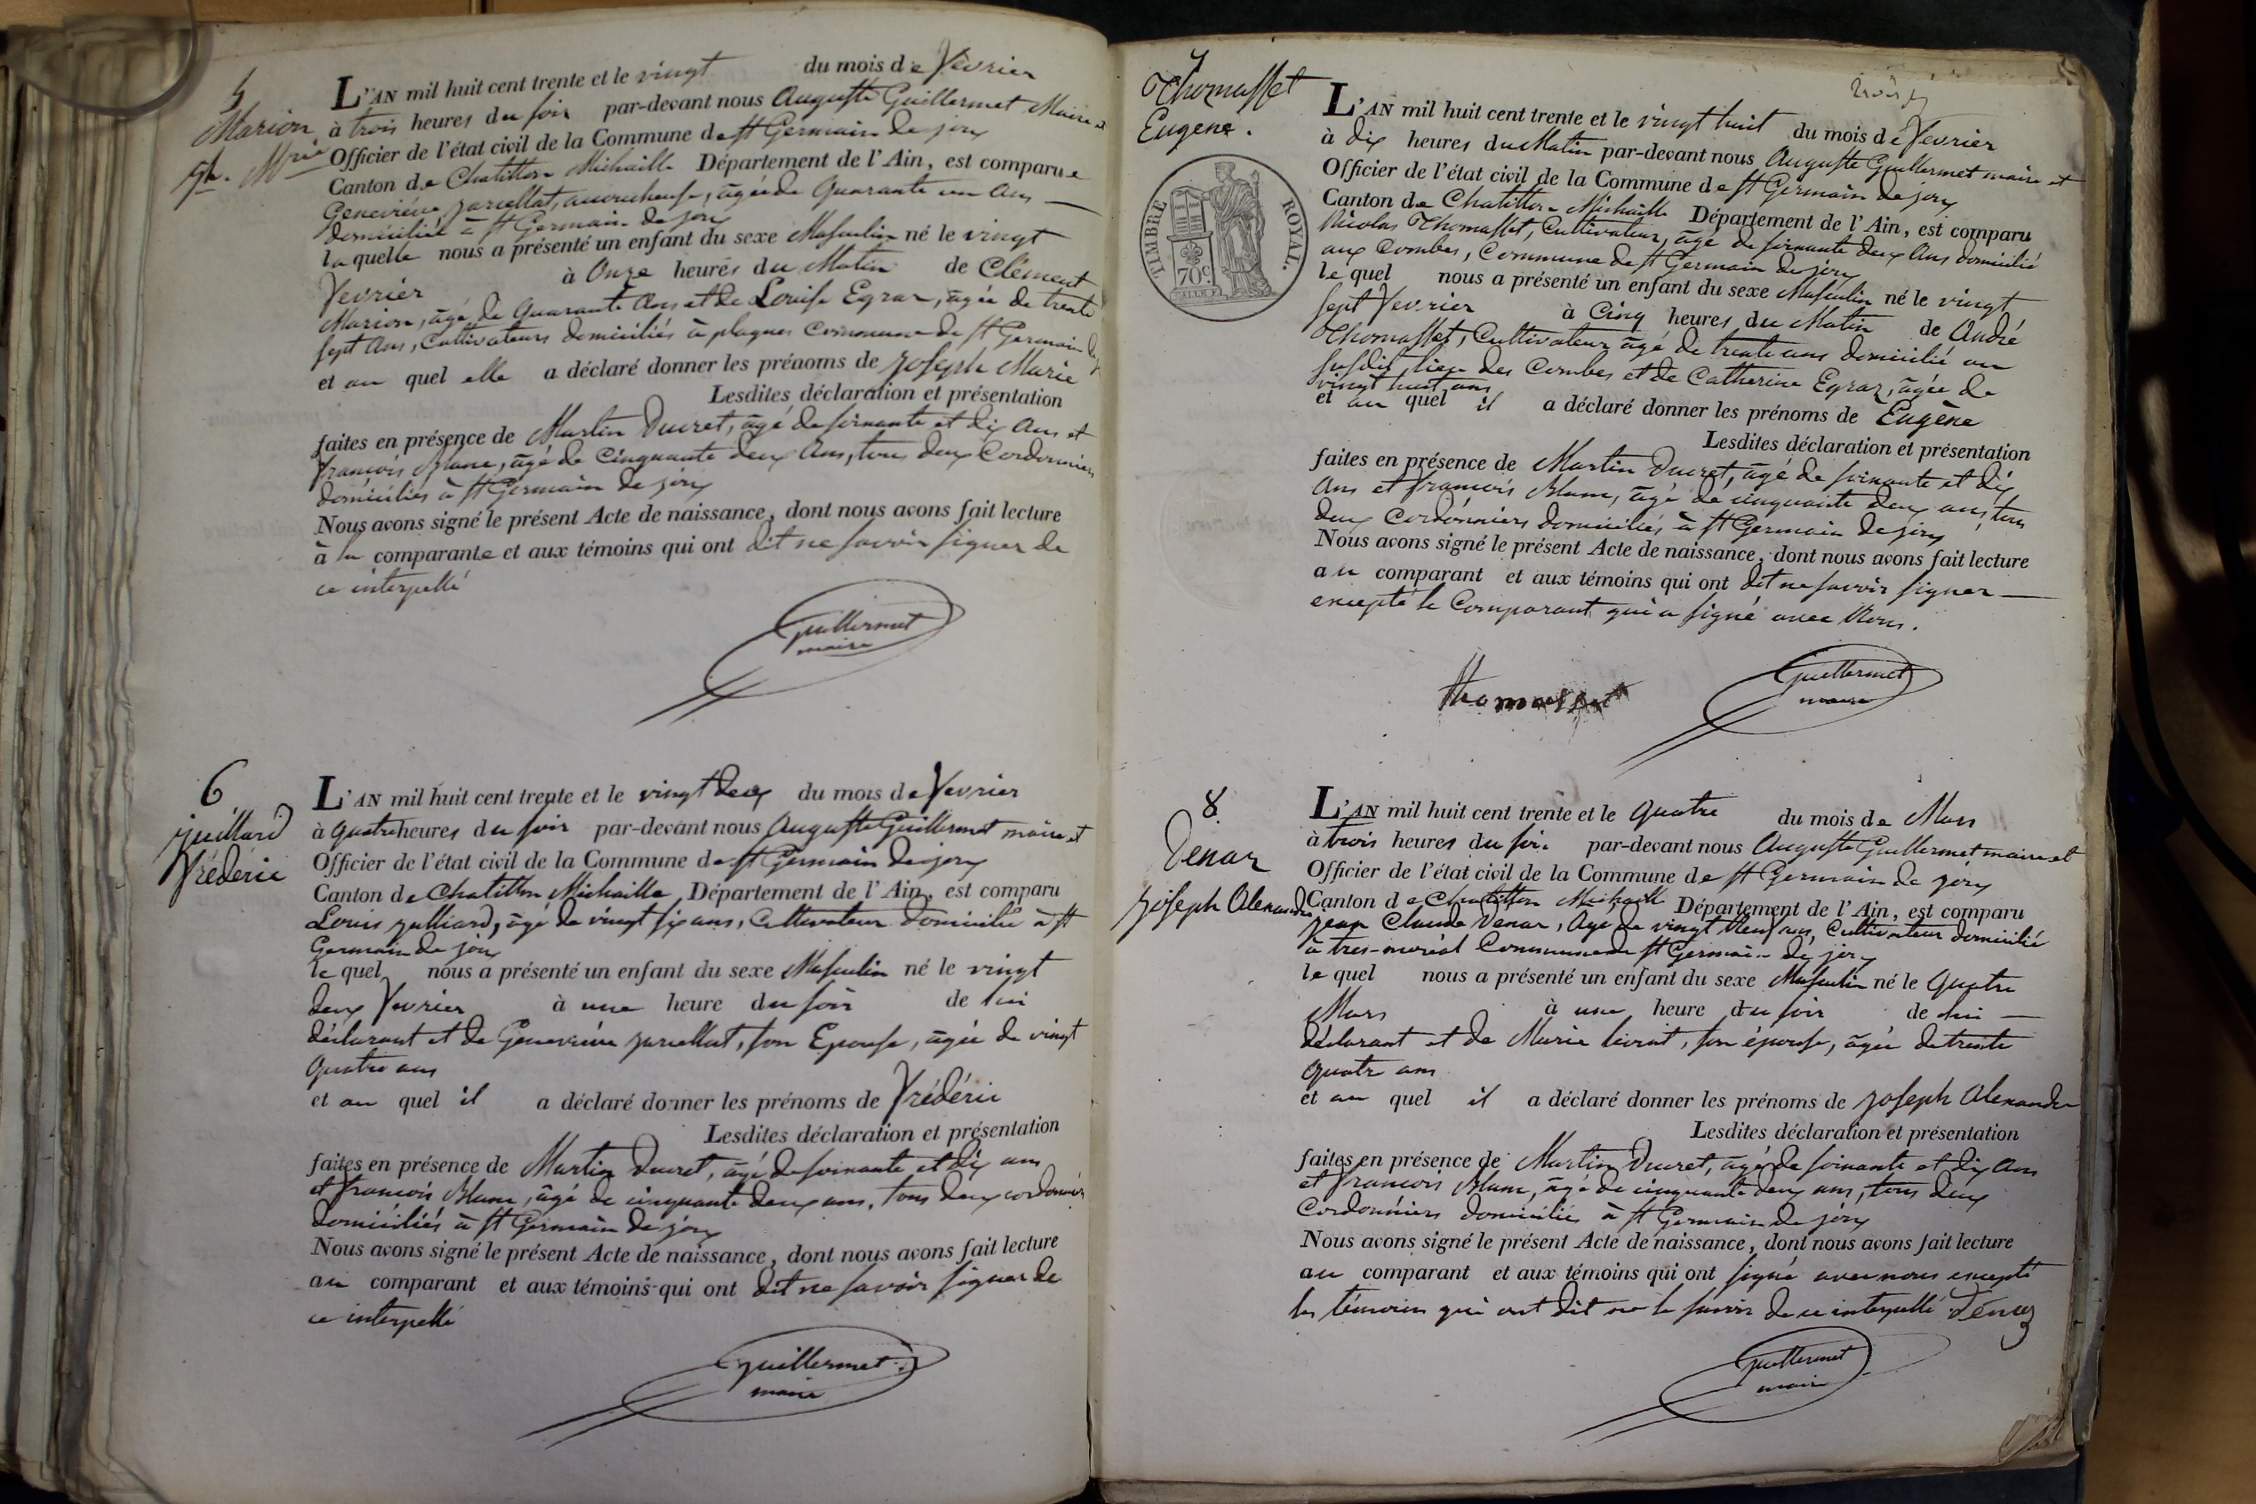 5
Marion
jh. Mrie
L'AN mil huit cent trente et le vingt du mois de Février
à trois heures du soir par-devant nous Auguste Guillermet Maire et
Officier de l'état civil de la Commune de St Germain de joux
Canton de Chatillon Michaille Département de l'Ain, est comparue
Genevième jarcellat, accoucheuse, âgée de Quarante un Ans
domiciliée à St Germain de joux
la quelle nous a présenté un enfant du sexe Masculin né le vingt
Fevrier à Onze heures du Matin de Clément
Marion, âgé de Quarante Ans et de Louise Egraz, âgée de trente
sept Ans, Cultivateurs domiciliés à plagnes Commune de St Germain de j
et au quel elle a déclaré donner les prénoms de joseph Marie
Lesdites déclaration et présentation
faites en présence de Martin Ducret, âgé de soixante et dix Ans et
francois Blanc, âgé de Cinquante deux Ans, tous deux Cordonniers
domiciliés à St Germain de joux
Nous avons signé le présent Acte de naissance, dont nous avons fait lecture
à la comparante et aux témoins qui ont dit ne savoir signer de
ce interpellé
Guillermet
maire
6
juillard
Fréderic
L'AN mil huit cent trente et le vingt deux du mois de Fevrier
à quatre heures du soir par-devant nous Auguste Guillermet maire et
Officier de l'état civil de la Commune de St Germain de joux
Canton de Chatillon Michaille Département de l'Ain, est comparu
Louis julliard, âgé de vingt six ans, Cultivateur domicilié à St
Germain de joux
le quel nous a présenté un enfant du sexe Masculin né le vingt
deux Fevrier à une heure du soir de lui
déclarant et de Genevième jarcellat, son Epouse, âgée de vingt
quatre ans
et au quel il a déclaré donner les prénoms de Fréderic
Lesdites déclaration et présentation
faites en présence de Martin Ducret, âgé de soixante et dix ans
et francois Blanc, âgé de cinquante deux ans, tous deux cordonniers
domiciliés à St Germain de joux
Nous avons signé le présent Acte de naissance, dont nous avons fait lecture
au comparant et aux témoins qui ont dit ne savoir signer de
ce interpellé
Guillermet
maire
7
Thomasset
Eugene.
TIMBRE ROYAL.
70c.
L'AN mil huit cent trente et le vingt huit du mois de Fevrier
à dix heures du Matin par-devant nous Auguste Guillermet maire et
Officier de l'état civil de la Commune de St Germain de joux
Canton de Chatillon Michaille Département de l'Ain, est comparu
Nicolas Thomasset, Cultivateur, âgé de soixante deux Ans domicilié
aux Combes, Commune de St Germain de joux
le quel nous a présenté un enfant du sexe Masculin né le vingt
sept Fevrier à Cinq heures du Matin de André
Thomasset, Cultivateur âgé de trente ans domicilié au
susdit lieu des Combes et de Catherine Egraz, âgée de
vingt huit ans
et au quel il a déclaré donner les prénoms de Eugène
Lesdites déclaration et présentation
faites en présence de Martin Ducret, âgé de soixante et dix
Ans et francois Blanc, âgé de cinquante deux ans, tous
deux Cordonniers domiciliés à St Germain de joux
Nous avons signé le présent Acte de naissance, dont nous avons fait lecture
au comparant et aux témoins qui ont dit ne savoir signer
excepté le Comparant qui a signé avec Nous.
thomasset
Guillermet
maire
8
Venar
joseph Alexandre
L'AN mil huit cent trente et le Quatre du mois de Mars
à trois heures du soir par-devant nous Auguste Guillermet maire et
Officier de l'état civil de la Commune de St Germain de joux
Canton de Chatillon Michaille Département de l'Ain, est comparu
jean Claude Venar, Agé de vingt Neuf ans, Cultivateur domicilié
à tres-moriol Commune de St Germain de joux
le quel nous a présenté un enfant du sexe Masculin né le Quatre
Mars à une heure du soir de lui
déclarant et de Marie son épouse, âgée de trente
quatre ans
et au quel il a déclaré donner les prénoms de joseph Alexandre
Lesdites déclaration et présentation
faites en présence de Martin Ducret, âgé de soixante et dix Ans
et francois Blanc, âgé de cinquante deux ans, tous deux
Cordonniers domiciliés à St Germain de joux
Nous avons signé le présent Acte de naissance, dont nous avons fait lecture
au comparant et aux témoins qui ont signé avec nous excepté
les témoins qui ont dit ne le savoir de ce interpellé
Guillermet
maire